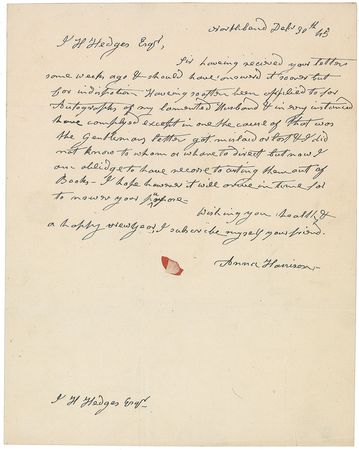 Northbend Decr 30th 45
I H Hedges Esqr,
Sir having received your letters
some weeks ago & should have answered it sooner but
for indisposition. Having so often been applied to for
Autographs of my lamented Husband & in every instance
have complyed except in one the cause of that was
the Gentlemans letter got mislaid or lost & I did
not know to whom or whare to direct but now I
am obliedge to have recorse to cuting them out of
Books – I hope however it will arive in time for
to answer your purpose –
Wishing you health &
a happy new year, I subscribe myself your friend.
Anna Harrison –
I H Hedges Esqr